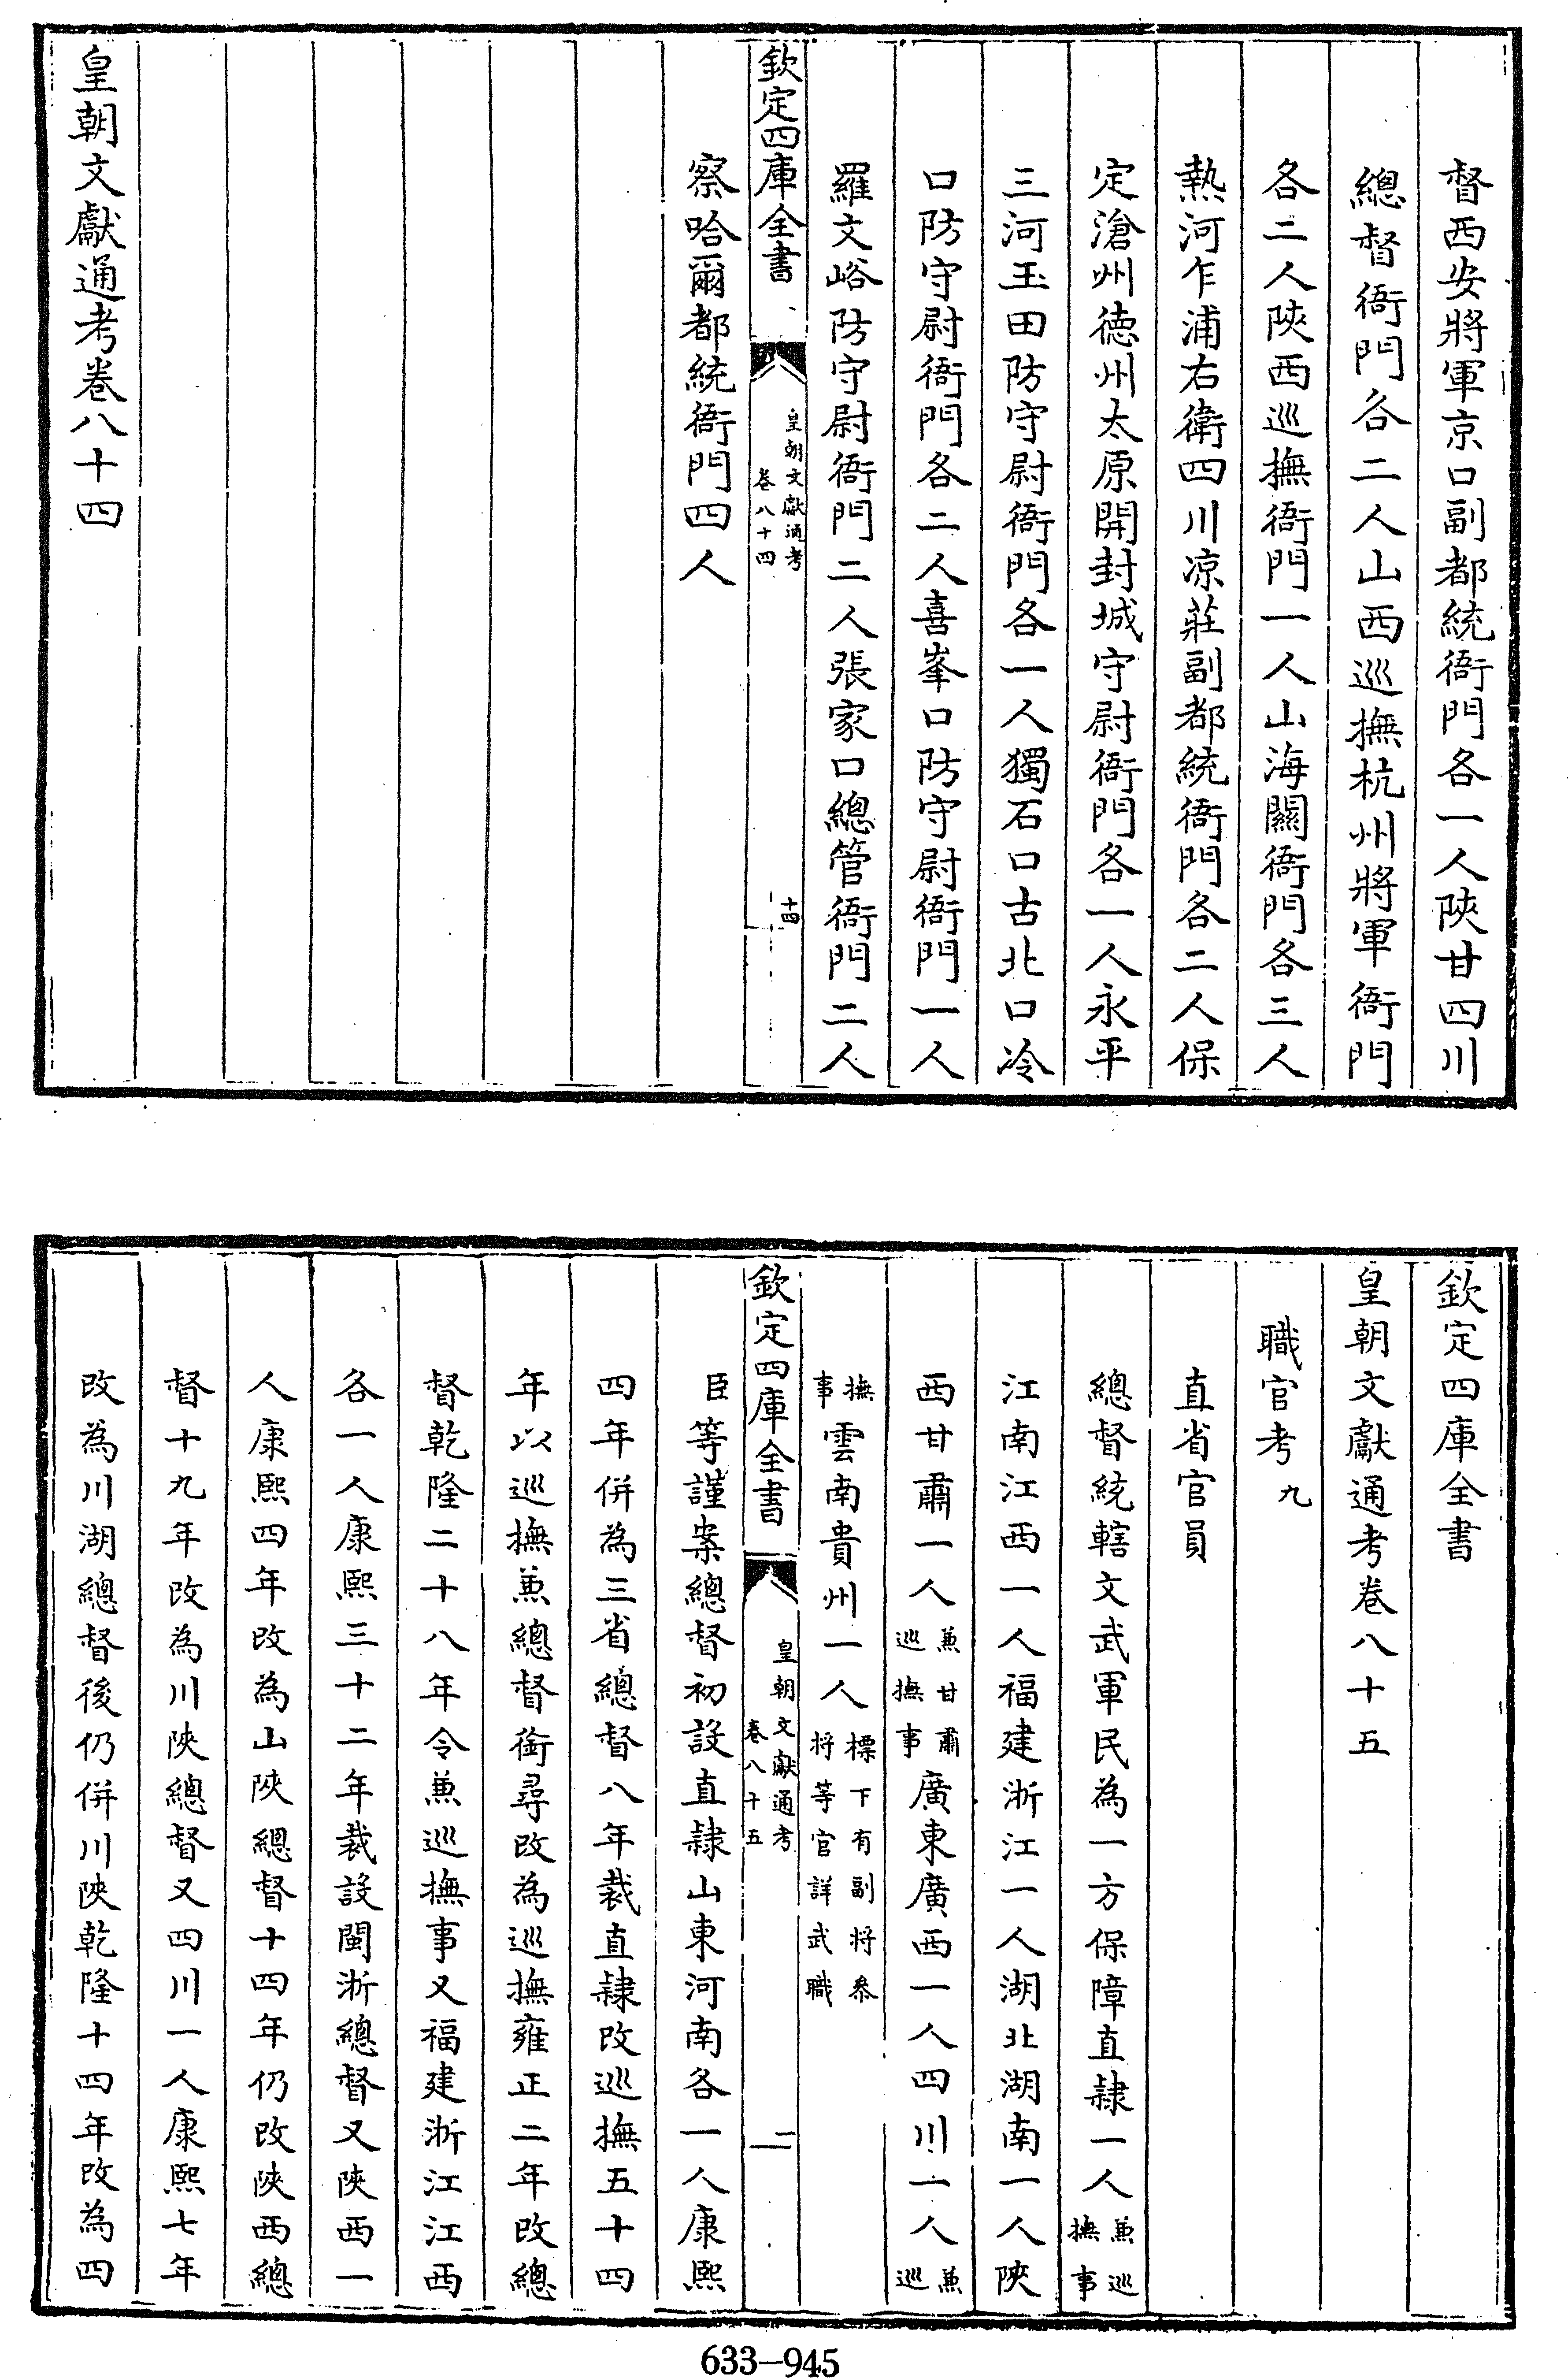 督西安將軍京口副都統衙門各一人陜甘四川
總督衙門各二人山西巡撫杭州將軍衙門
各二人陜西巡撫衙門一人山海關衙門各三人
熱河乍浦右衛四川凉莊副都統衙門各二人保
定滄州德州太原開封城守尉衙門各一人永平
三河玉田防守尉衙門各一人獨石口古北口冷
口防守尉衙門各二人喜峯口防守尉衙門一人
羅文峪防守尉衙門二人張家口總管衙門二人
欽定四庫全書
皇朝文獻通考
卷八十四
十四
察哈爾都統衙門四人
皇朝文獻通考卷八十四
欽定四庫全書
皇朝文獻通考卷八十五
職官考九
直省官員
總督統轄文武軍民為一方保障直隸一人兼巡撫事
江南江西一人福建浙江一人湖北湖南一人陜
西甘肅一人兼甘肅巡撫事廣東廣西一人四川一人兼巡
撫事雲南貴州一人標下有副将叅将等官詳武職
欽定四庫全書
皇朝文獻通考
卷八十五
二
臣等謹案總督初設直隸山東河南各一人康熙
四年併為三省總督八年裁直隸改巡撫五十四
年以巡撫兼總督銜尋改為巡撫雍正二年改總
督乾隆二十八年令兼巡撫事又福建浙江江西
各一人康熙三十二年裁設閩浙總督又陜西一
人康熙四年改為山陜總督十四年仍改陜西總
督十九年改為川陜總督又四川一人康熙七年
改為川湖總督後仍併川陜乾隆十四年改為四
633-945